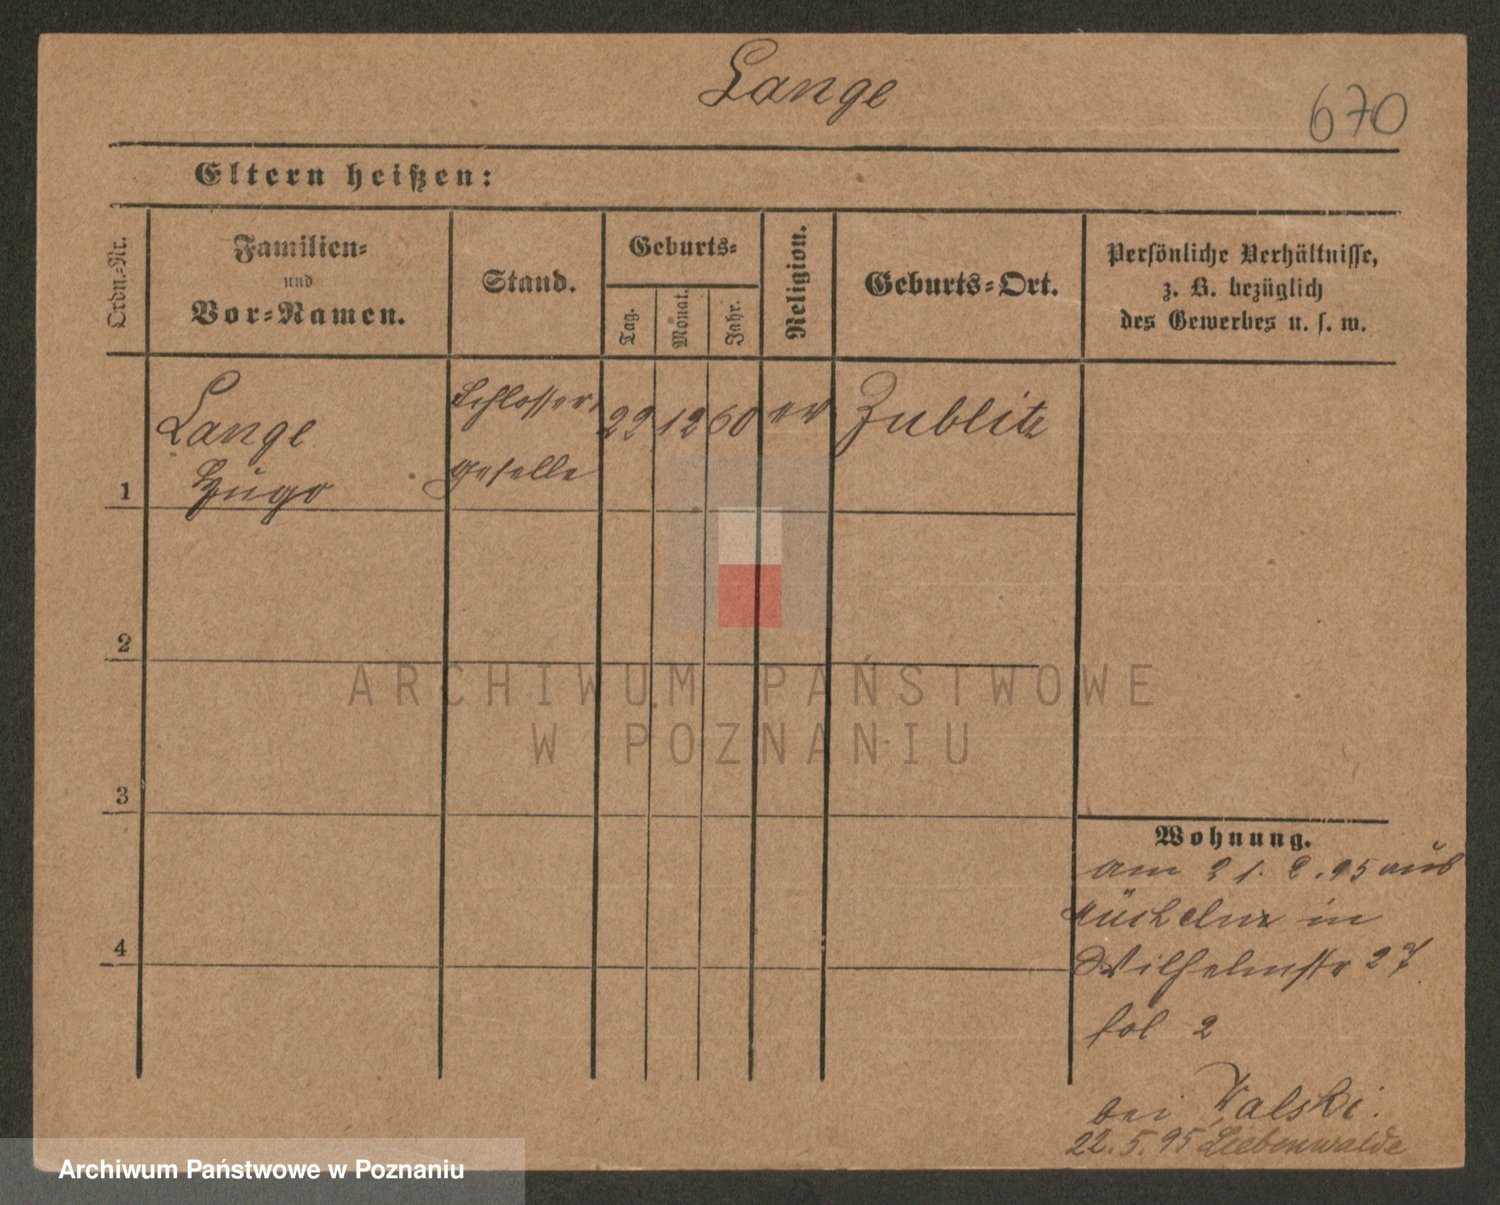 Lange
670
Eltern heißen:
Ordn.-Nr.
Familien-
und
Vor-Namen.
Stand.
Geburts-
Tag.
Monat.
Jahr.
Religion.
Geburts-Ort.
Persönliche Verhältnisse,
z. B. bezüglich
des Gewerbes u. s. w.
Lange
Hugo
Schlosser
geselle
22 12 60 ev Zublitz
1
2
3
4
ARCHIWUM PAŃSTWOWE
W POZNANIU
Wohnung.
am 21. 2. 95 aus
in
Wilhelmstr 27
fol 2
bei Walski.
22. 5. 95 Liebenwalde
Archiwum Państwowe w Poznaniu